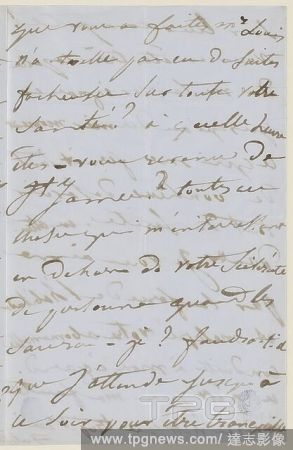 que vous a faite Mr Louis
n'a t'elle pas eu de suites
facheuses sur toute votre
santé ? à quelle heure
êtes-vous revenue de
St James ? toutes ces
choses qui m'intéressent
en dehors de votre
de personne quand les
saurai-je ? faudra-t-il
que j'attende jusqu'à
ce soir pour être tranquille
TPG
www.tpgnews.com / 達志影像